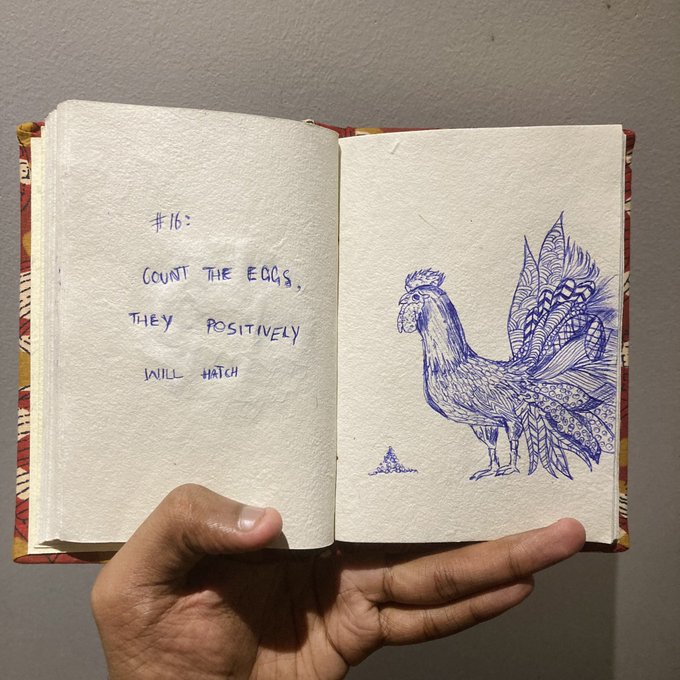 #16:
COUNT THE EGGS,
THEY POSITIVELY
WILL HATCH